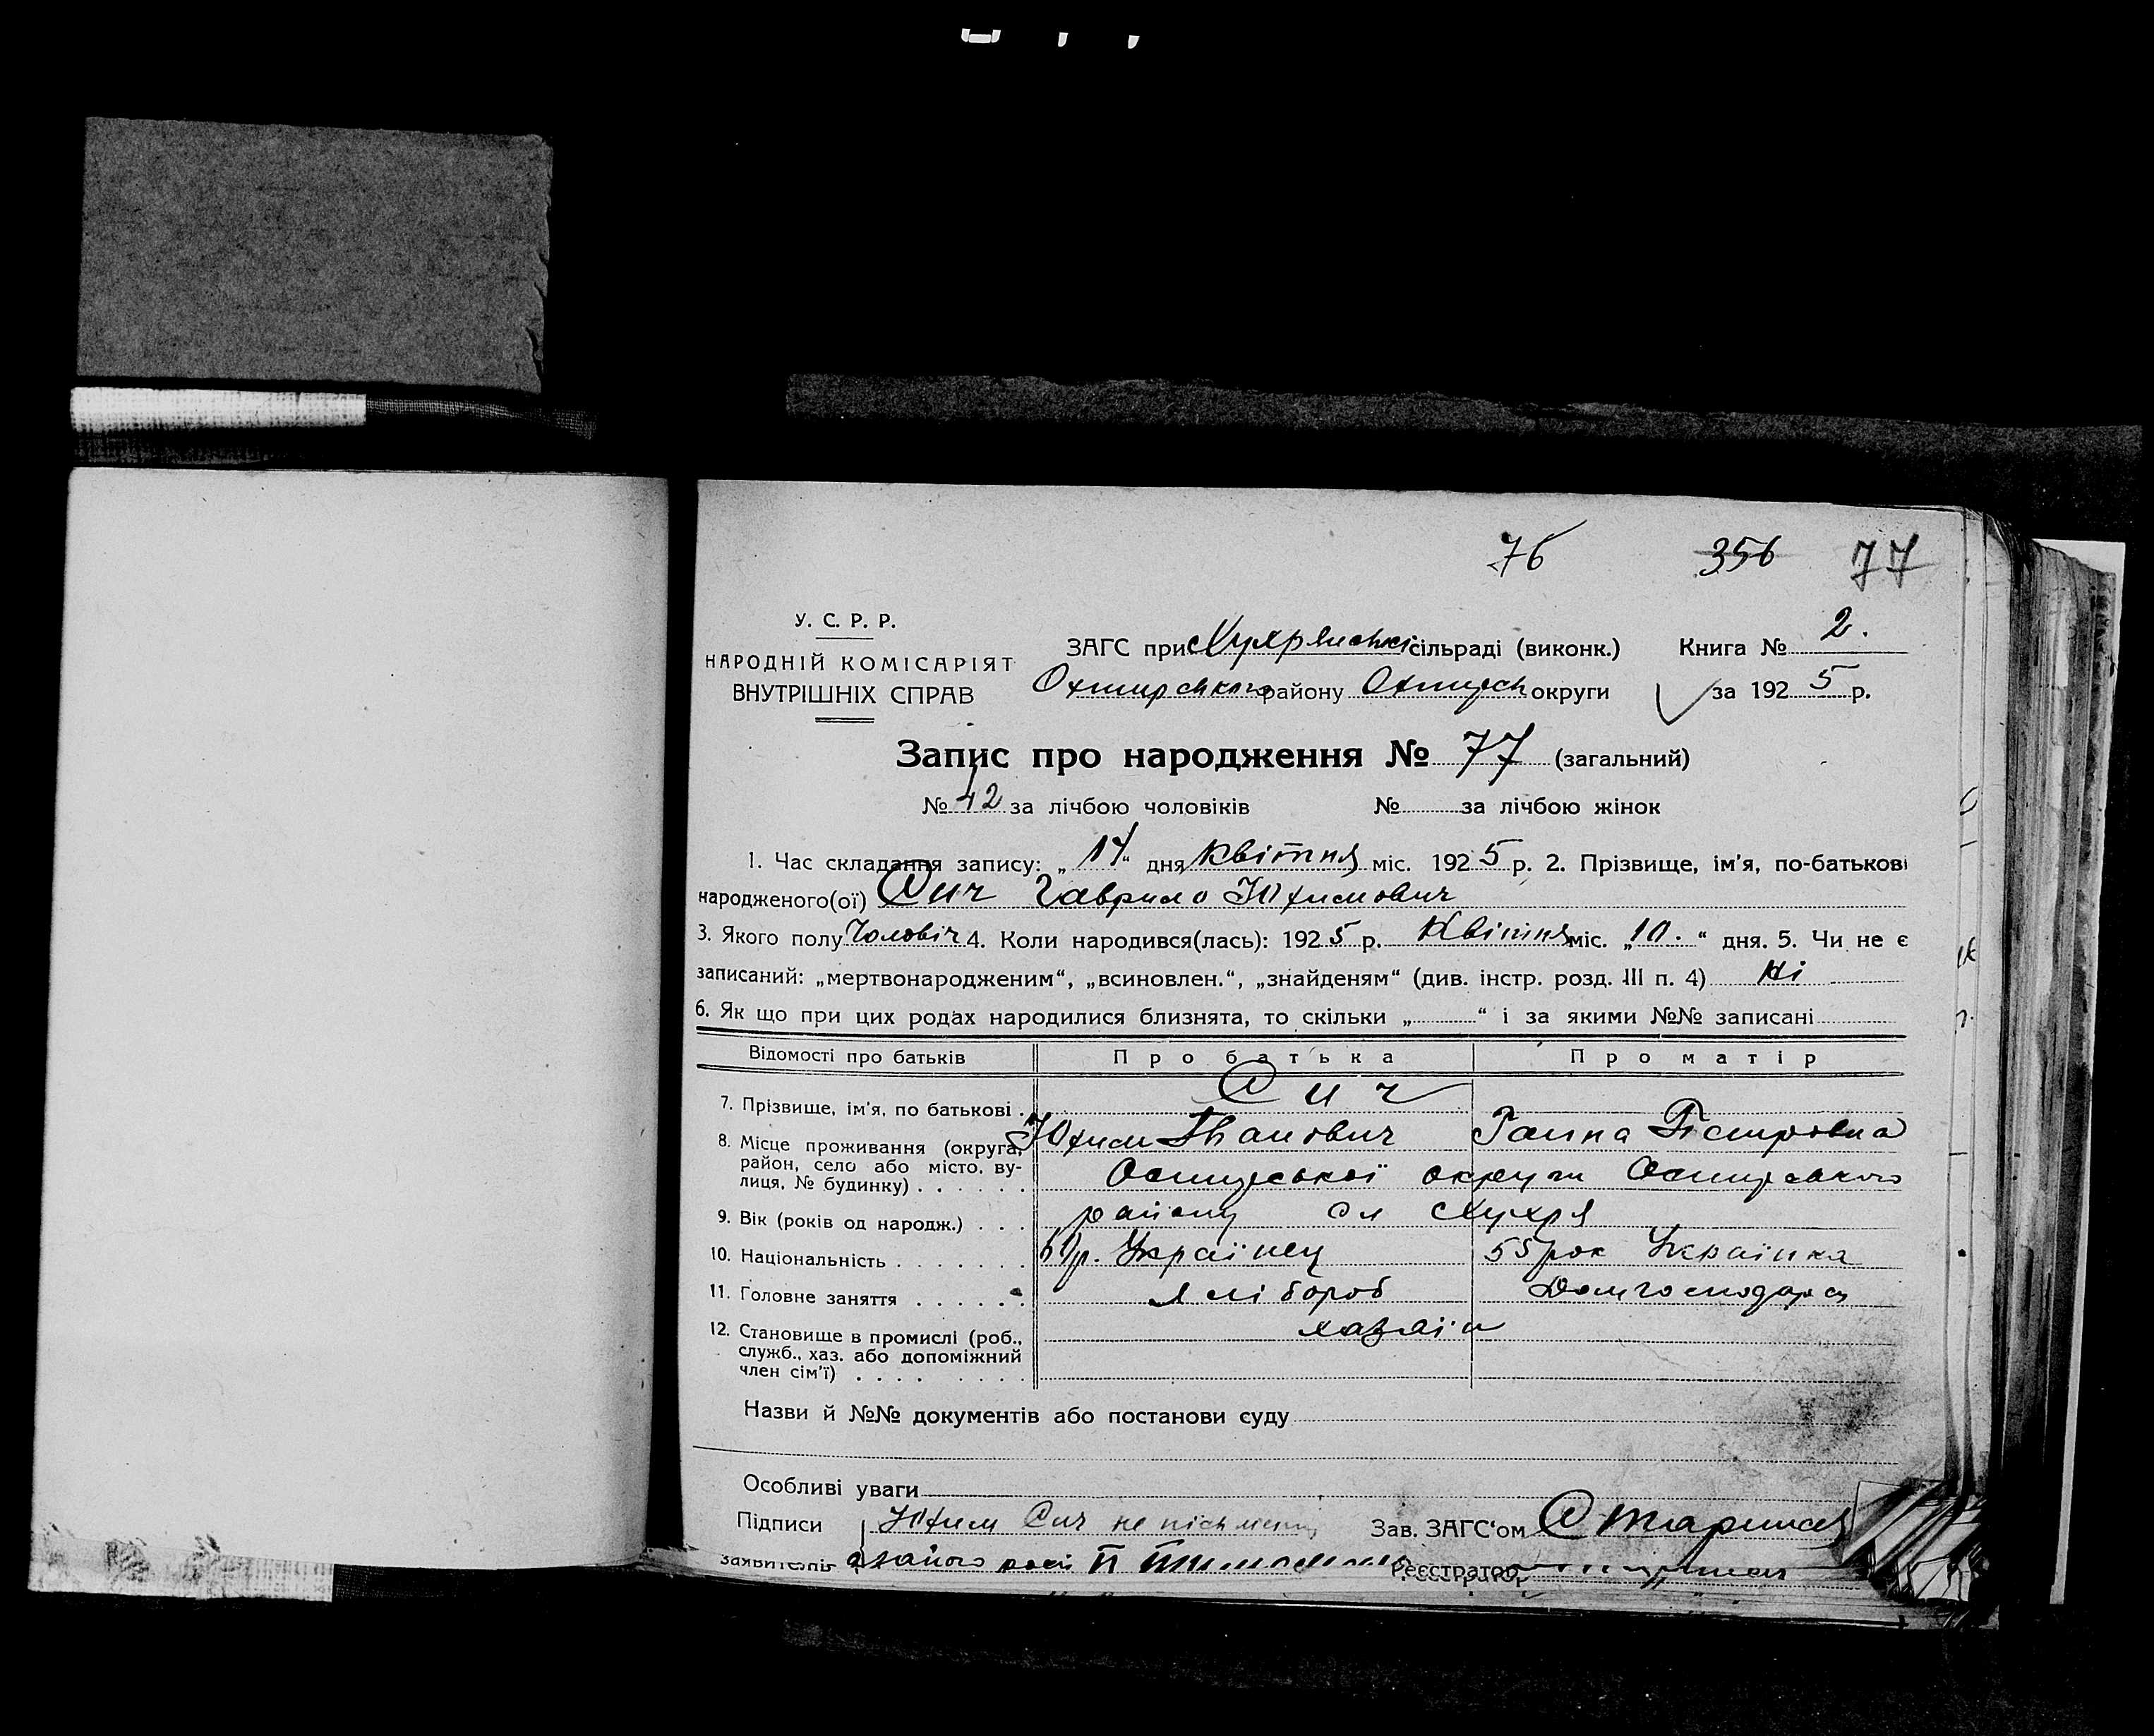 76 356 77
У. С. Р. Р.
НАРОДНІЙ КОМІСАРІЯТ
ВНУТРІШНІХ СПРАВ
ЗАГС при Хухрянській сільраді (виконк.) Книга № 2.
Охтирського району Охтирськ округи за 1925 р.
Запис про народження № 77 (загальний)
№ 42 за лічбою чоловіків № за лічбою жінок
1. Час складання запису: „14“ дня Квітня міс. 1925 р. 2. Прізвище, ім'я, по-батькові
народженого(ої) Сич Гаврило Юхимович
3. Якого полу Чоловіч 4. Коли народився(лась): 1925 р. Квітня міс. „10.“ дня. 5. Чи не є
записаний: „мертвонародженим“, „всиновлен.“, „знайденям“ (див. інстр. розд. III п. 4) Ні
6. Як що при цих родах народилися близнята, то скільки „ “ і за якими №№ записані
Відомості про батьків Про батька Про матір
7. Прізвище, ім'я, по батькові . Сич
Юхим Іванович Ганна Петровна
8. Місце проживання (округа, район, село або місто, вулиця, № будинку) . . . . . .
Охтирської округи Охтирського
району сл Хухря
9. Вік (років од народж.) . . .
10. Національність . . . . . . . Українец 55 рок Українка
11. Головне заняття . . . . . . хлібороб Домгосподарка
12. Становище в промислі (роб., служб., хаз. або допоміжний член сім'ї) . . . . . . . .
хазяїн
Назви й №№ документів або постанови суду
Особливі уваги
Підписи Юхим Сич не письмени Зав. ЗАГС'ом
заявителів Реєстратор